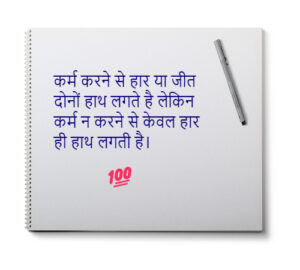 कर्म करने से हार या जीत
दोनों हाथ लगते है लेकिन
कर्म न करने से केवल हार
ही हाथ लगती है।
💯